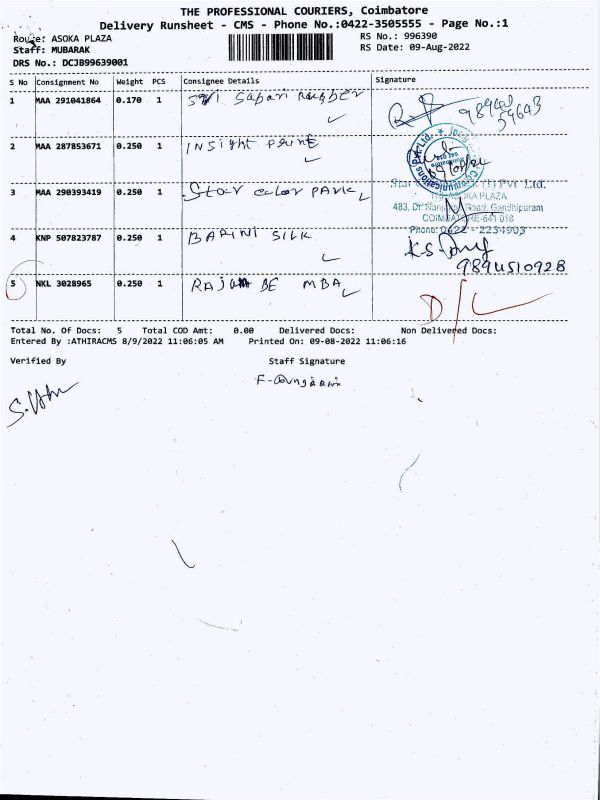 THE PROFESSIONAL COURIERS, Coimbatore
Delivery Runsheet - CMS - Phone No.:0422-3505555 - Page No.:1
Route: ASOKA PLAZA
RS No.: 996390
Staff: MUBARAK
RS Date: 09-Aug-2022
DRS No.: DCJB99639001
S No Consignment No Weight PCS Consignee Details Signature
1 MAA 291041864 0.170 1 Sri Sabari Rubber
2 MAA 287853671 0.250 1 INSight Print
3 MAA 290393419 0.250 1 Star color PARK
483, Gandhipuram
4 KNP 507823787 0.250 1 BARINI SILK
Phone: 0422 - 2234903
9894510928
5 NKL 3028965 0.250 1 RAJAM BE MBA
D/L
Total No. Of Docs: 5 Total COD Amt: 0.00 Delivered Docs: Non Delivered Docs:
Entered By :ATHIRACMS 8/9/2022 11:06:05 AM Printed On: 09-08-2022 11:06:16
Verified By Staff Signature